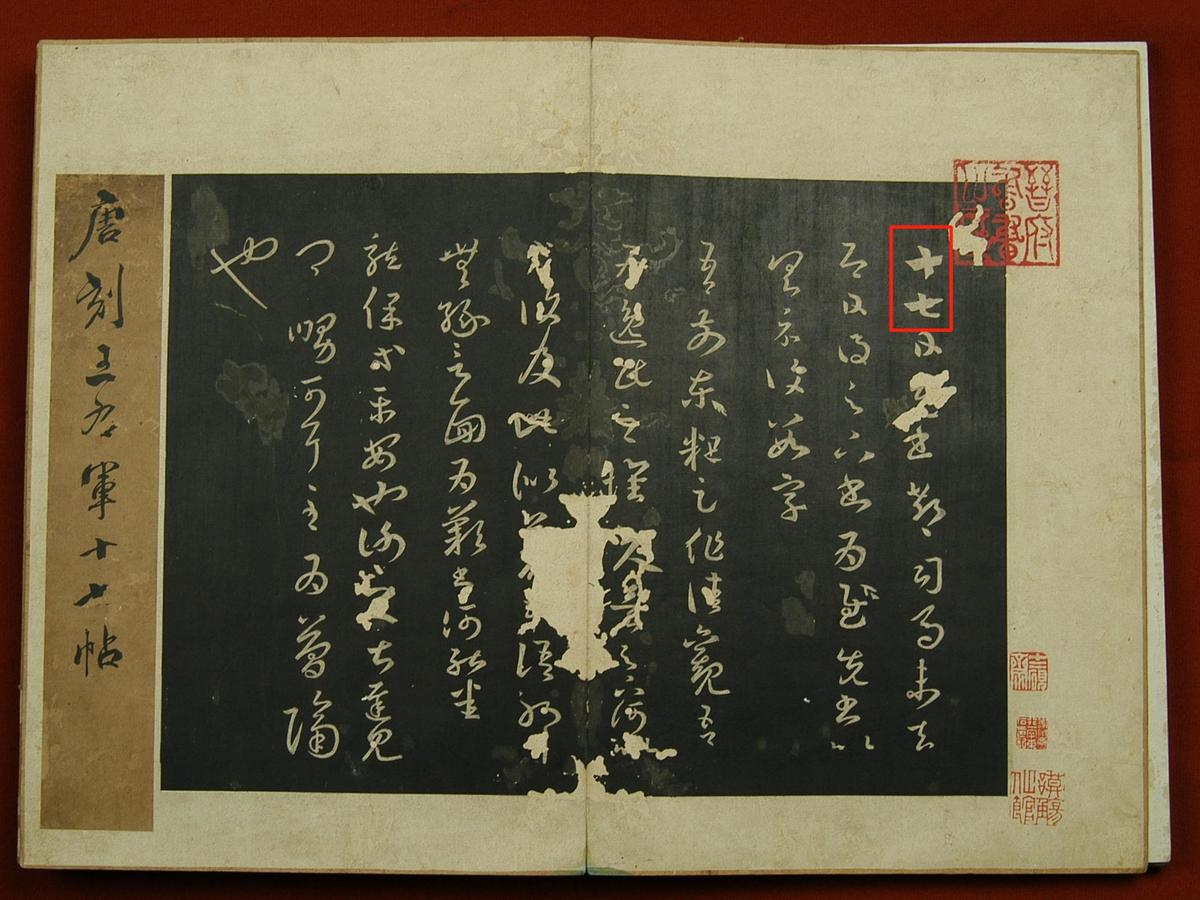 晉府書畫之印
十七日先書郗司馬未去
即日得足下書為慰先書以
具示復數字
吾前東粗足作佳觀吾
為逸民之懷久矣足下何以
方復及此似夢中語耶
無緣言面為歎書何能悉
龍保等平安也謝之甚遲見
卿舅可耳至為簡隔
也
唐刻王右軍十七帖